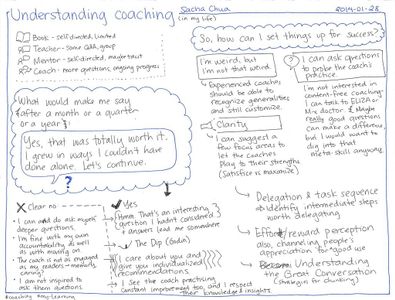 Understanding coaching
(in my life)
Sacha Chua
2014-01-28
Book - self-directed, limited
Teacher - some Q&A, group
Mentor - self-directed, major tacit
Coach - more questions, ongoing progress
What would make me say
after a month or a quarter
or a year:
Yes, that was totally worth it.
I grew in ways I couldn't have
done alone. Let's continue.
?
So, how can I set things up for success?
I'm weird, but
I'm not that weird.
Experienced coaches
should be able to
recognize generalities
and still customize.
Clarity
I can suggest a
few focus areas to
let the coaches
play to their strengths
(Satisfice vs. maximize)
? I can ask questions
to probe the coach's
practice.
I'm not interested in
content-free coaching.
I can talk to ELIZA or
Mrs doctor. &
really good questions
can make a difference,
but I would want to
dig into that
meta-skill anyway.
Clear no
I can and do ask myself
deeper questions.
I'm fine with my own
accountability as
well as with moving on
The coach is not as engaged
as my readers
I am not inspired to
ask them questions.
Yes
Hmm. That's an interesting
question I hadn't considered
+ answers lead me somewhere
The Dip (Godin)
I care about you and
give you individualized
recommendations.
I see the coach practising
constant improvement too, and I respect
their knowledge and insights.
Delegation & task sequence
Identify intermediate steps
worth delegating
Effort/reward perception
also, channeling people's
appreciation for good use
Understanding
the Great Conversation
(Strategic for chunking)
#coaching #my-learning